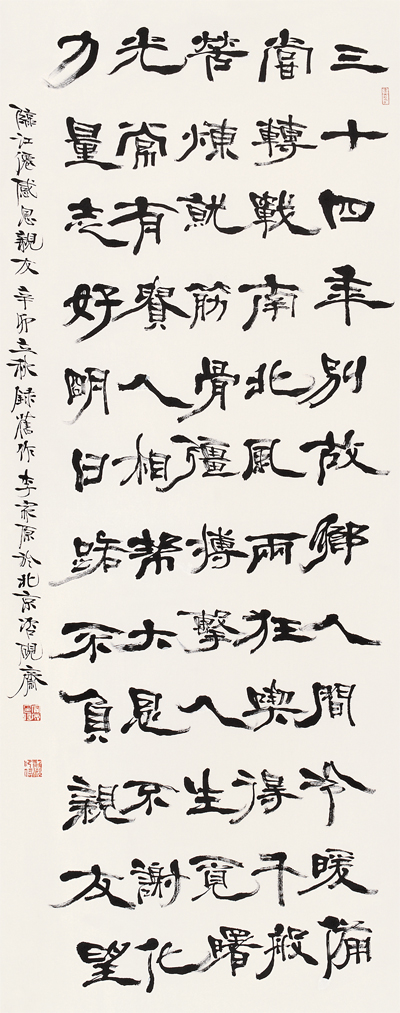 三十四年別故鄉人間冷暖備
嘗轉戰南北風雨狂喫得千般
苦煉就筋骨彊搏擊人生覓曙
光常有賢人相幫大恩不謝化
力量志好明日路不負親友望
臨江僊感恩親友 辛卯立秋 錄舊作 李家原於北京硯齋